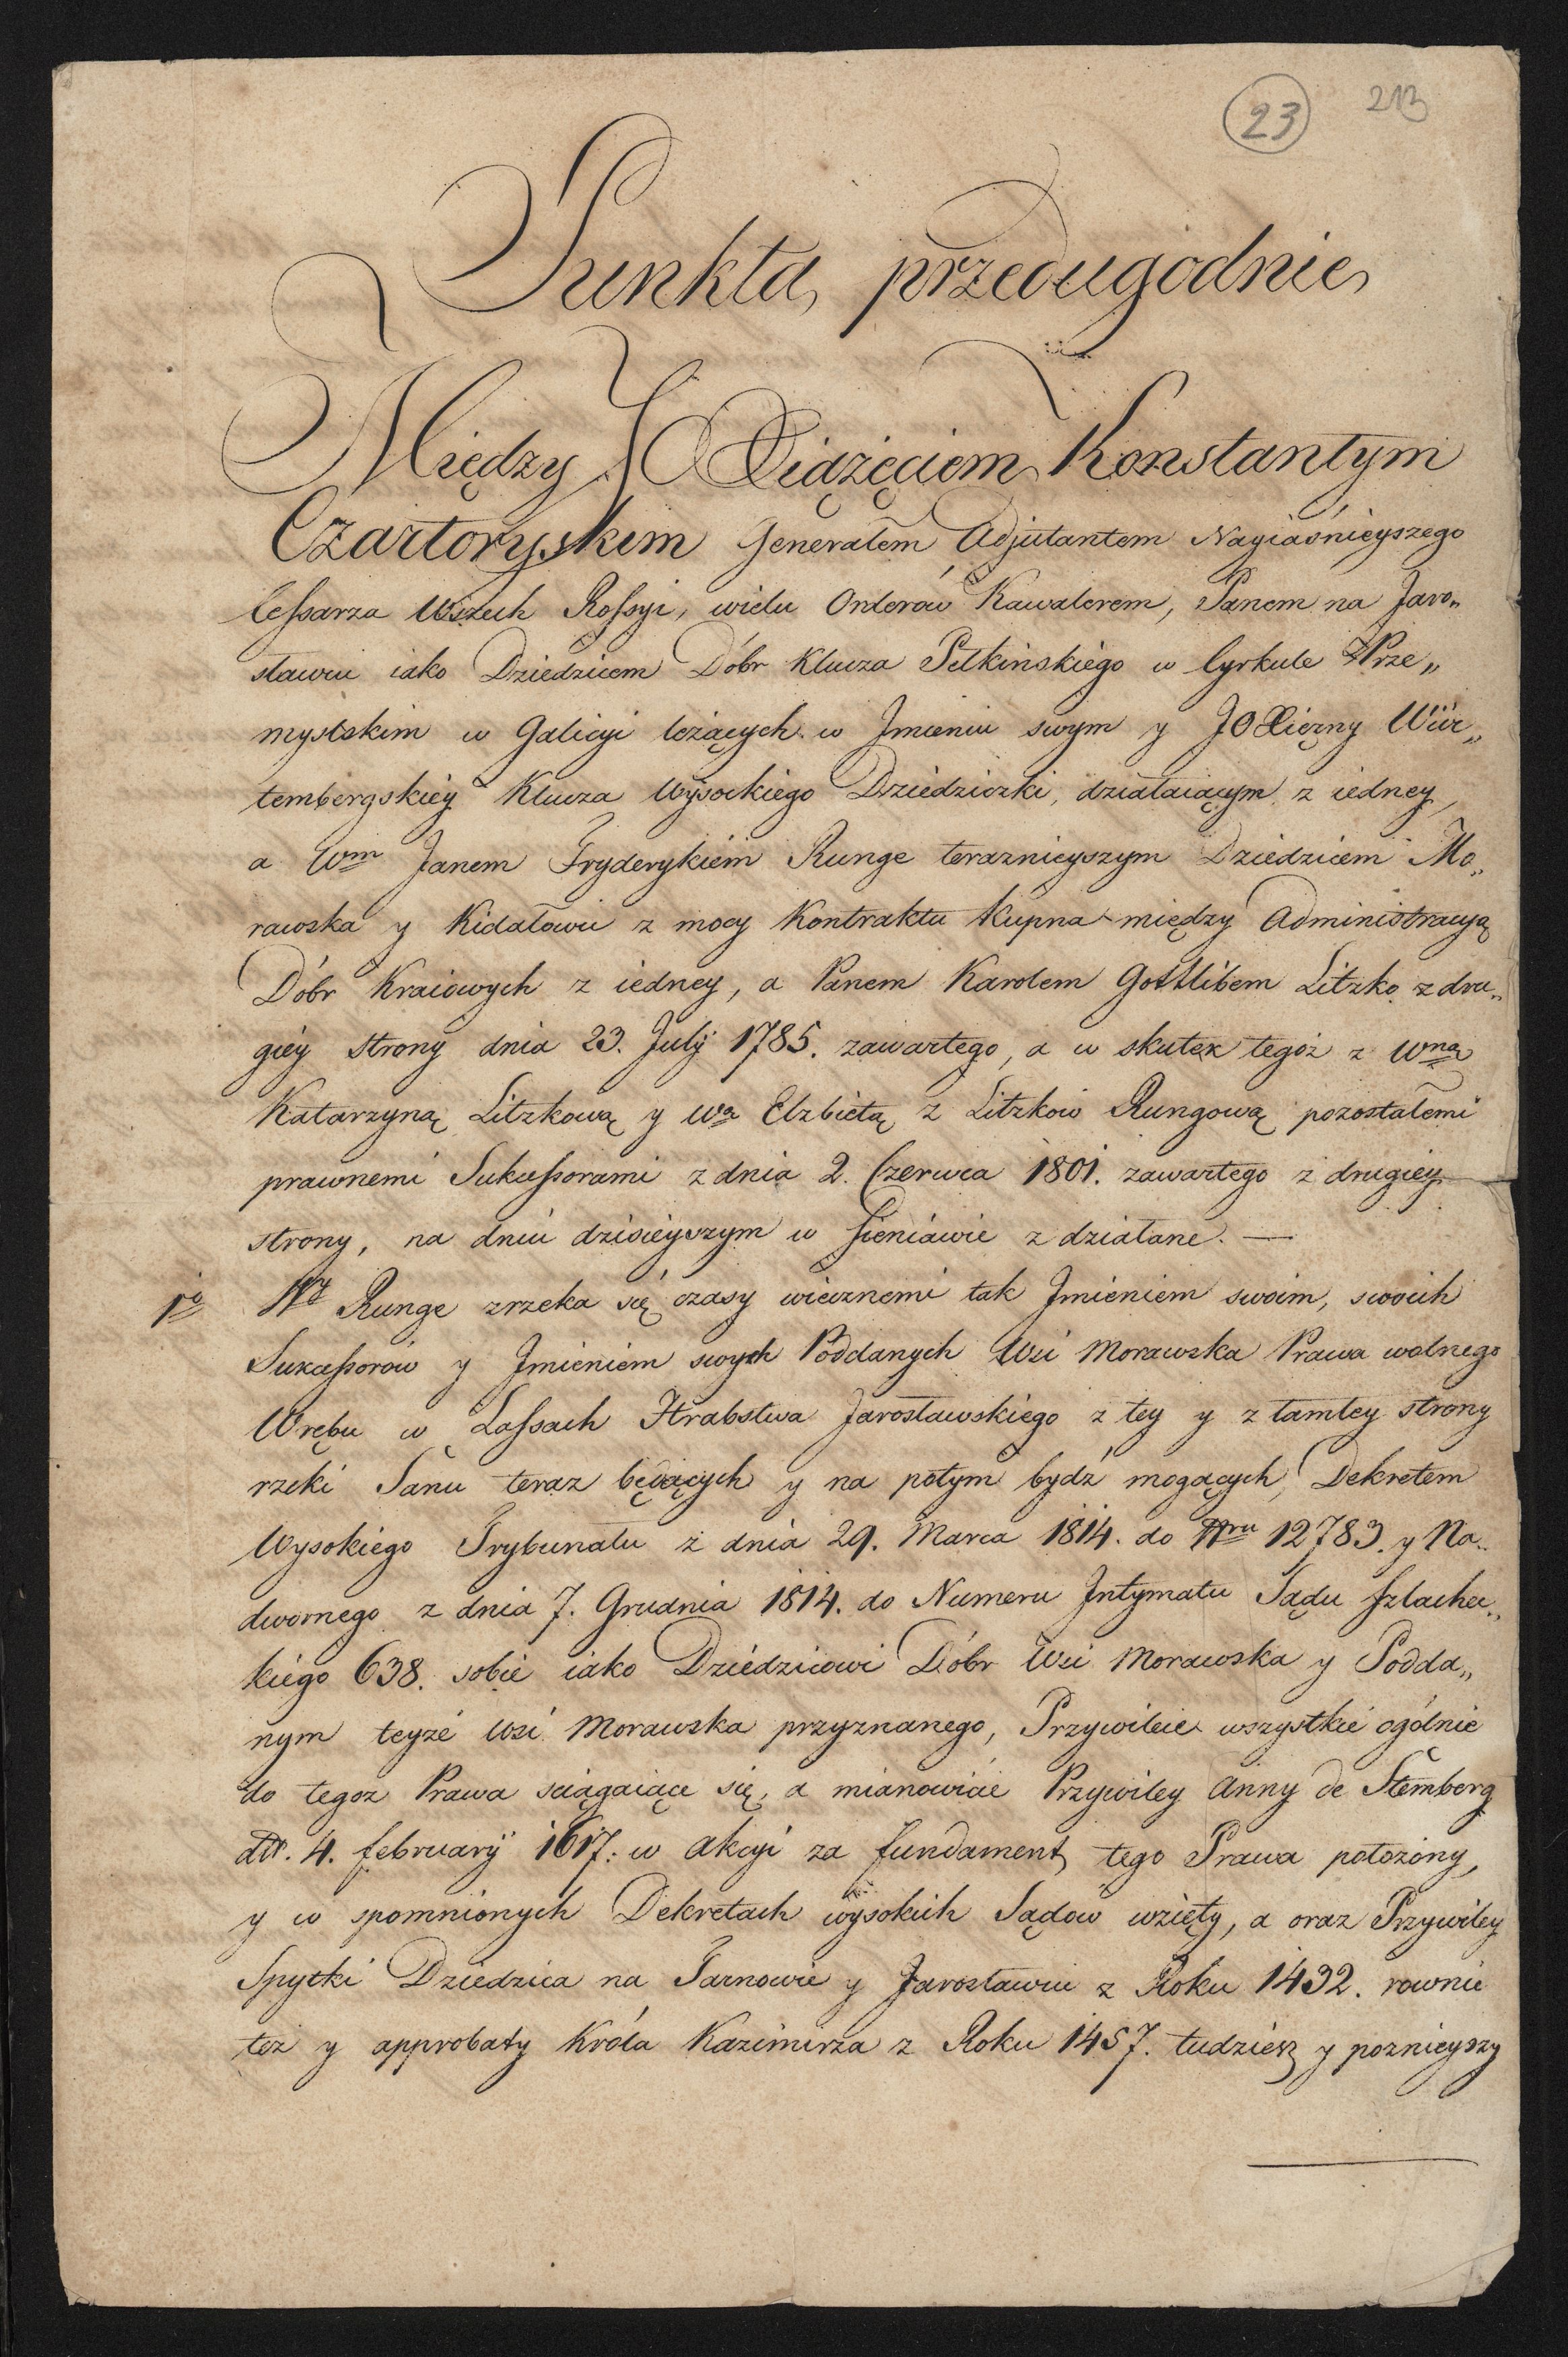 23 213
Punkta przedugodnie
Między JO Xiążęciem Konstantym
Czartoryskim Generałem Adjutantem Nayiaśnieyszego
Cessarza Wszech Rossyi, wielu Orderów Kawalerem, Panem na Jaro„
sławiu iako Dziedzicem Dóbr Klucza Pełkińskiego w Cyrkule Prze„
mysłskim w Galicyi leżących w Jmieniu swym y JOXiężny Wür„
tembergskiey Klucza Wysockiego Dziedziczki, działaiącym z iedney,
a Wm Janem Fryderykiem Runge teraznieyszym Dziedzicem Mo„
rawska y Kidałowic z mocy Kontraktu Kupna między Administracyą
Dóbr Kraiowych z iedney, a Panem Karolem Gottlibem Litzko z dru„
giey strony dnia 23. Julÿ 1785. zawartego, a w skutek tegoż z Wną
Katarzyną Litzkową y Wą Elzbietą z Litzkow Rungową pozostałemi
prawnemi Sukcessorami z dnia 2. Czerwca 1801. zawartego z drugiey
strony, na dniu dzisieyszym w Sieniawie zdziałane. —
1o Wy Runge zrzeka się czasy wiecznemi tak Jmieniem swoim, swoich
Sukcessorów y Jmieniem swych Poddanych Wsi Morawska Prawa wolnego
Wrębu w Lassach Hrabstwa Jarosławskiego z tey y z tamtey strony
rzeki Sanu teraz będących y na potym bydź mogących, Dekretem
Wysokiego Trybunału z dnia 29. Marca 1814. do Nru 12783. y Na„
dwornego z dnia 7. Grudnia 1814. do Numeru Jntymatu Sądu Szlachec„
kiego 638. sobie iako Dziedzicowi Dóbr Wsi Morawska y Podda„
nym teyże Wsi Morawska przyznanego, Przywileie wszystkie ogólnie
do tegoz Prawa sciągaiące się, a mianowicie Przywiley Anny de Stemberg
dtt. 4. februarÿ 1617. w Akcyi za fundament tego Prawa położony,
y w spomnionych Dekretach wysokich Sądow wzięty, a oraz Przywiley
Spytki Dziedzica na Tarnowie y Jarosławiu z Roku 1432. rownie
też y approbaty Króla Kazimirza z Roku 1457. tudziesz y poznieyszy